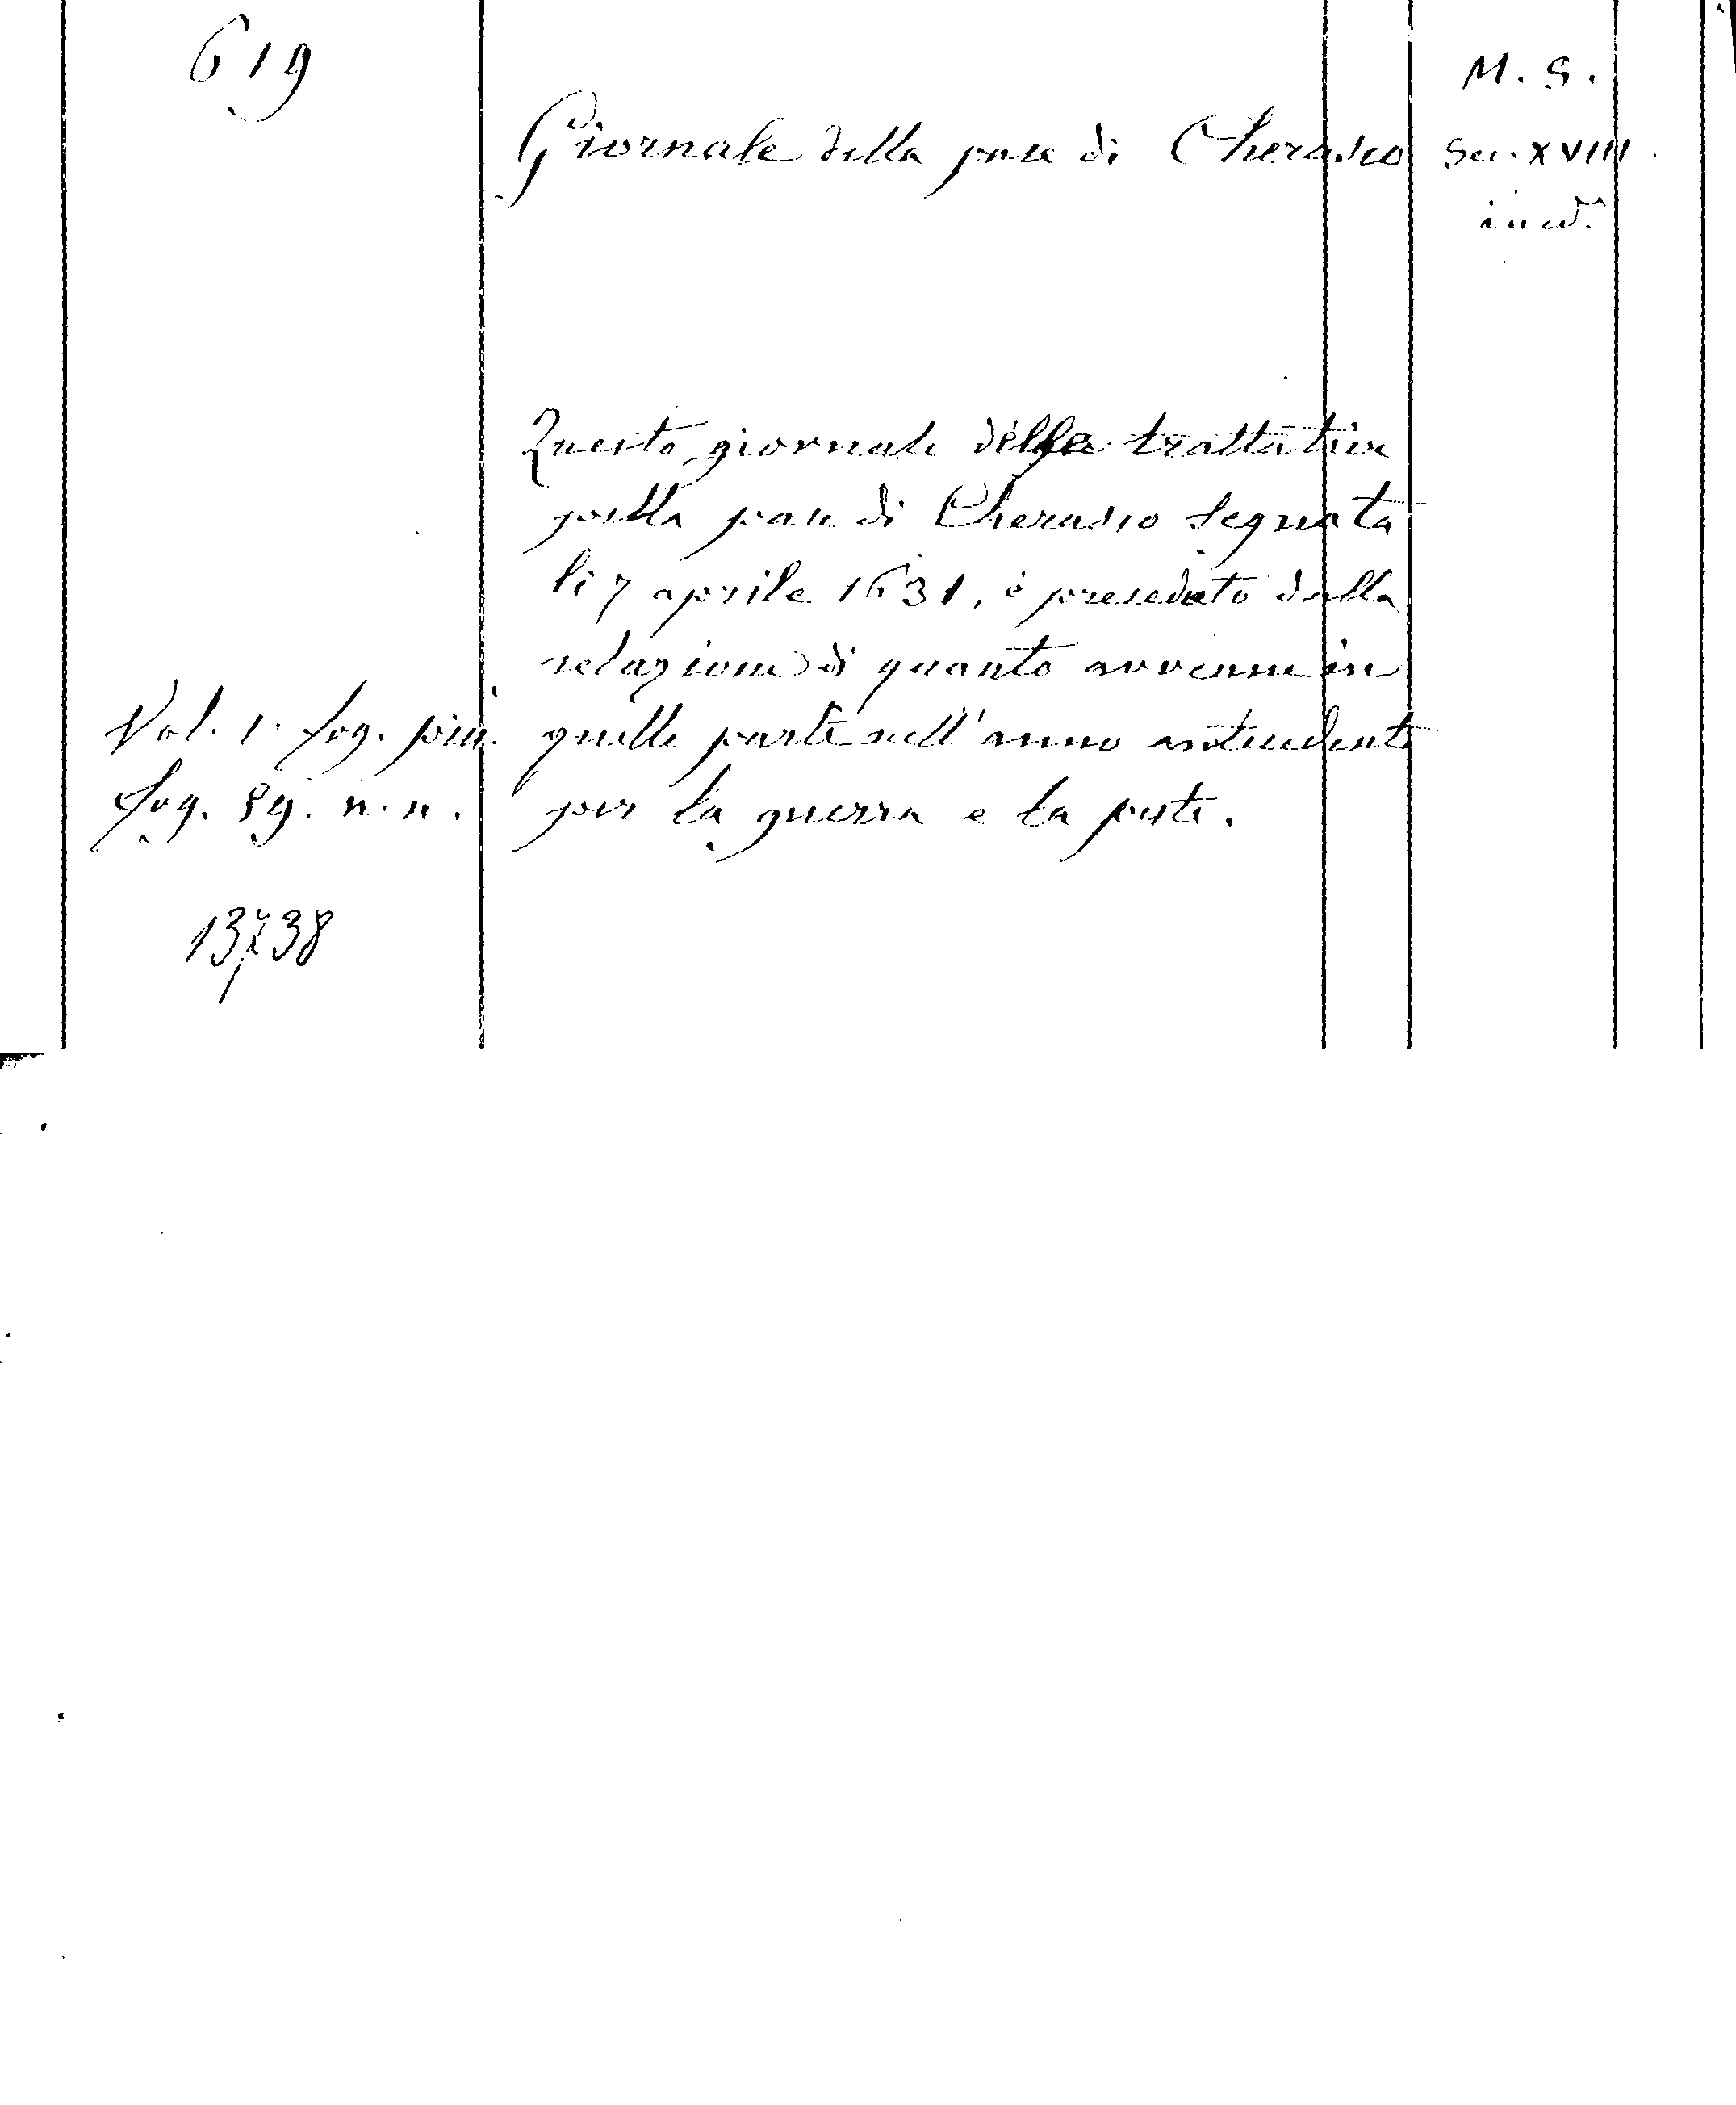 619
M. S.
Giornale della pace di Cherasco
Sec. XVIII.
ined.
Questo giornale delle trattative
pella pace di Cherasco segnata
li 7 aprile 1631, è preceduto dalla
relazione di quanto avvenne in
quelle parti nell'anno antecedente
per la guerra e la peste.
Vol. 1. fog. picc.
fog. 89. n. n.
138